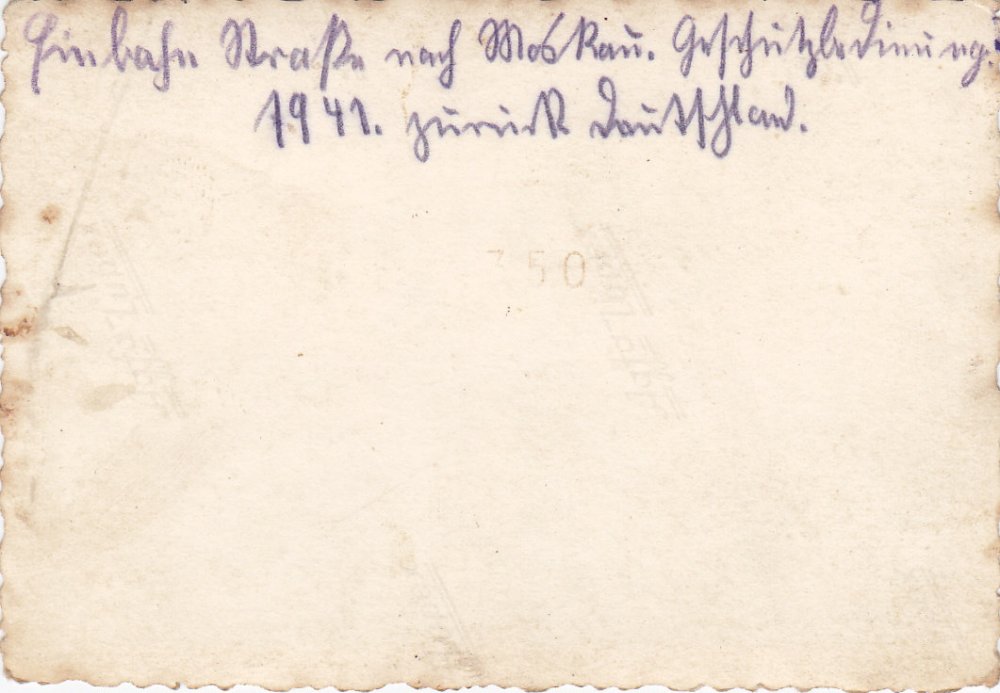 Einbahn Straße nach Moskau. Geschützbedinung.
1941. zurück Deutschland.
350